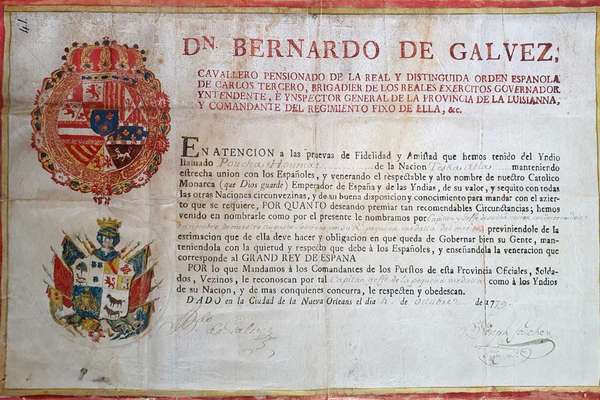 14
DN. BERNARDO DE GALVEZ;
CAVALLERO PENSIONADO DE LA REAL Y DISTINGUIDA ORDEN ESPAÑOLA
DE CARLOS TERCERO, BRIGADIER DE LOS REALES EXERCITOS GOVERNADOR
YNTENDENTE, E YNSPECTOR GENERAL DE LA PROVINCIA DE LA LUISIANNA,
Y COMANDANTE DEL REGIMIENTO FIXO DE ELLA, &c.
EN ATENCION a las pruevas de Fidelidad y Amistad que hemos tenido del Yndio
llamado Poucha Houmas de la Nacion manteniendo
estrecha union con los Españoles, y venerando el respectable y alto nombre de nuestro Catolico
Monarca (que Dios guarde) Emperador de España y de las Yndias, de su valor, y sequito con todas
las otras Naciones circunvezinas, y de su buena disposicion y conocimiento para mandar con el azier-
to que se requiere, POR QUANTO deseando premiar tan recomendables Circunstancias; hemos
venido en nombrarle como por el presente le nombramos por Capitan
pequeña medalla previniendole de la
estimacion que de ella deve hacer y obligacion en que queda de Gobernar bien su Gente, man-
teniendola con la quietud y respecto que debe à los Españoles, y enseñandola la veneracion que
corresponde al GRAND REY DE ESPAÑA
POR lo que Mandamos à los Comandantes de los Puestos de esta Provincia Oficiales, Solda-
dos, Vezinos, le reconoscan por tal Capitan de la pequeña medalla como à los Yndios
de su Nacion, y de mas conquienes concurra, le respecten y obedescan.
DADO en la Ciudad de la Nueva Orleans el dia 4 de octubre de 1779